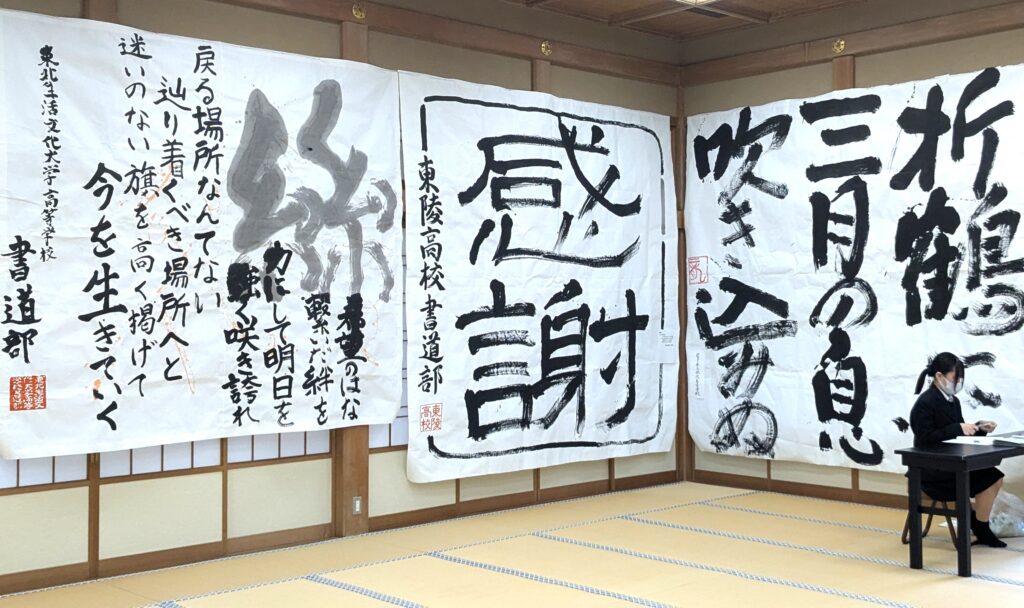 折鶴に
三月の息
吹き込みぬ
感謝
東陵高校 書道部
東陵
高校
絆
希望のはな
繋いだ絆を
力にして明日を
強く咲き誇れ
戻る場所なんてない
辿り着くべき場所へと
迷いのない旗を高く掲げて
今を生きていく
東北生活文化大学高等学校
書道部